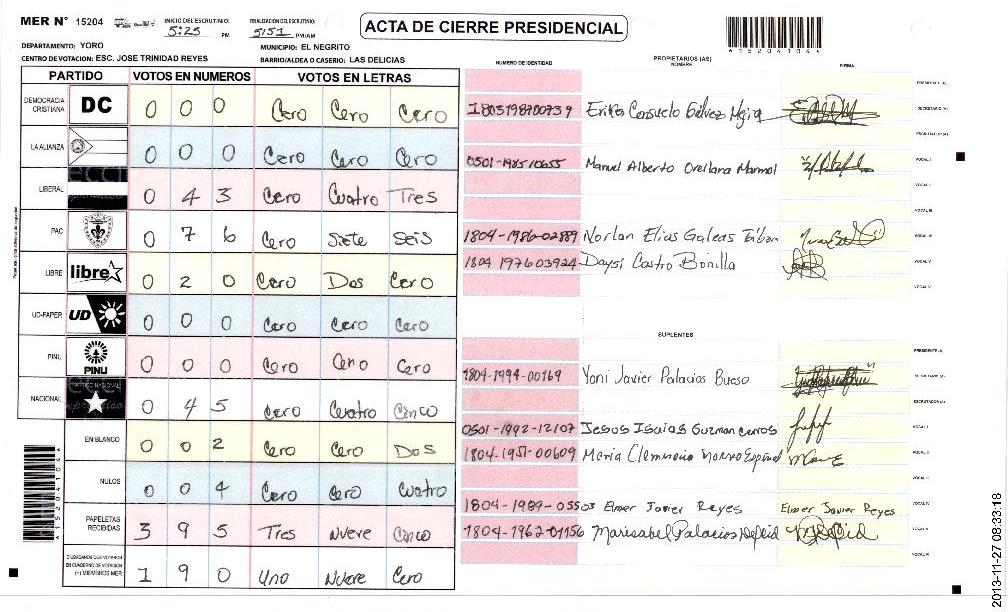 MER Nº 15204
INICIO DEL ESCRUTINIO: 5:25 PM
FINALIZACION DEL ESCRUTINIO: 5:51 PM/AM
ACTA DE CIERRE PRESIDENCIAL
DEPARTAMENTO: YORO
MUNICIPIO: EL NEGRITO
CENTRO DE VOTACION: ESC. JOSE TRINIDAD REYES
BARRIO/ALDEA O CASERIO: LAS DELICIAS
PARTIDO VOTOS EN NUMEROS VOTOS EN LETRAS
DEMOCRACIA CRISTIANA DC 0 0 0 Cero Cero Cero
LA ALIANZA 0 0 0 Cero Cero Cero
LIBERAL 0 4 3 Cero Cuatro Tres
PAC 0 7 6 Cero Siete Seis
LIBRE libre 0 2 0 Cero Dos Cero
UD-FAPER UD 0 0 0 Cero Cero Cero
PINU PINU 0 0 0 Cero Cero Cero
NACIONAL 0 4 5 Cero Cuatro Cinco
EN BLANCO 0 0 2 Cero Cero Dos
NULOS 0 0 4 Cero Cero Cuatro
PAPELETAS RECIBIDAS 3 9 5 Tres Nueve Cinco
CIUDADANOS QUE VOTARON EN CUADERNO DE VOTACION (+) MIEMBROS MER 1 9 0 Uno Nueve Cero
NUMERO DE IDENTIDAD
PROPIETARIOS (AS)
NOMBRE
FIRMA
PRESIDENTE (A)
1803198900739 Erika Consuelo Gálvez SECRETARIO (A)
ESCRUTADOR (A)
0501-1985/0655 Manuel Alberto Orellana Marmol VOCAL I
VOCAL II
VOCAL III
1804-1986-02889 Norlan Elias Galeas VOCAL IV
1804 197603924 Daysi Castro Bonilla VOCAL V
VOCAL VI
SUPLENTES
PRESIDENTE (A)
1804-1994-00169 Yoni Javier Palacios Bueso SECRETARIO (A)
ESCRUTADOR (A)
0501-1992-12107 Jesus Isaias Guzman VOCAL I
1804-1951-00609 Maria VOCAL II
VOCAL III
1804-1989-05503 Elmer Javier Reyes Elmer Javier Reyes VOCAL IV
1804-1962-01156 Marisabel Palacios VOCAL V
VOCAL VI
A15204104A
A15204104A
2013-11-27 08:33:18